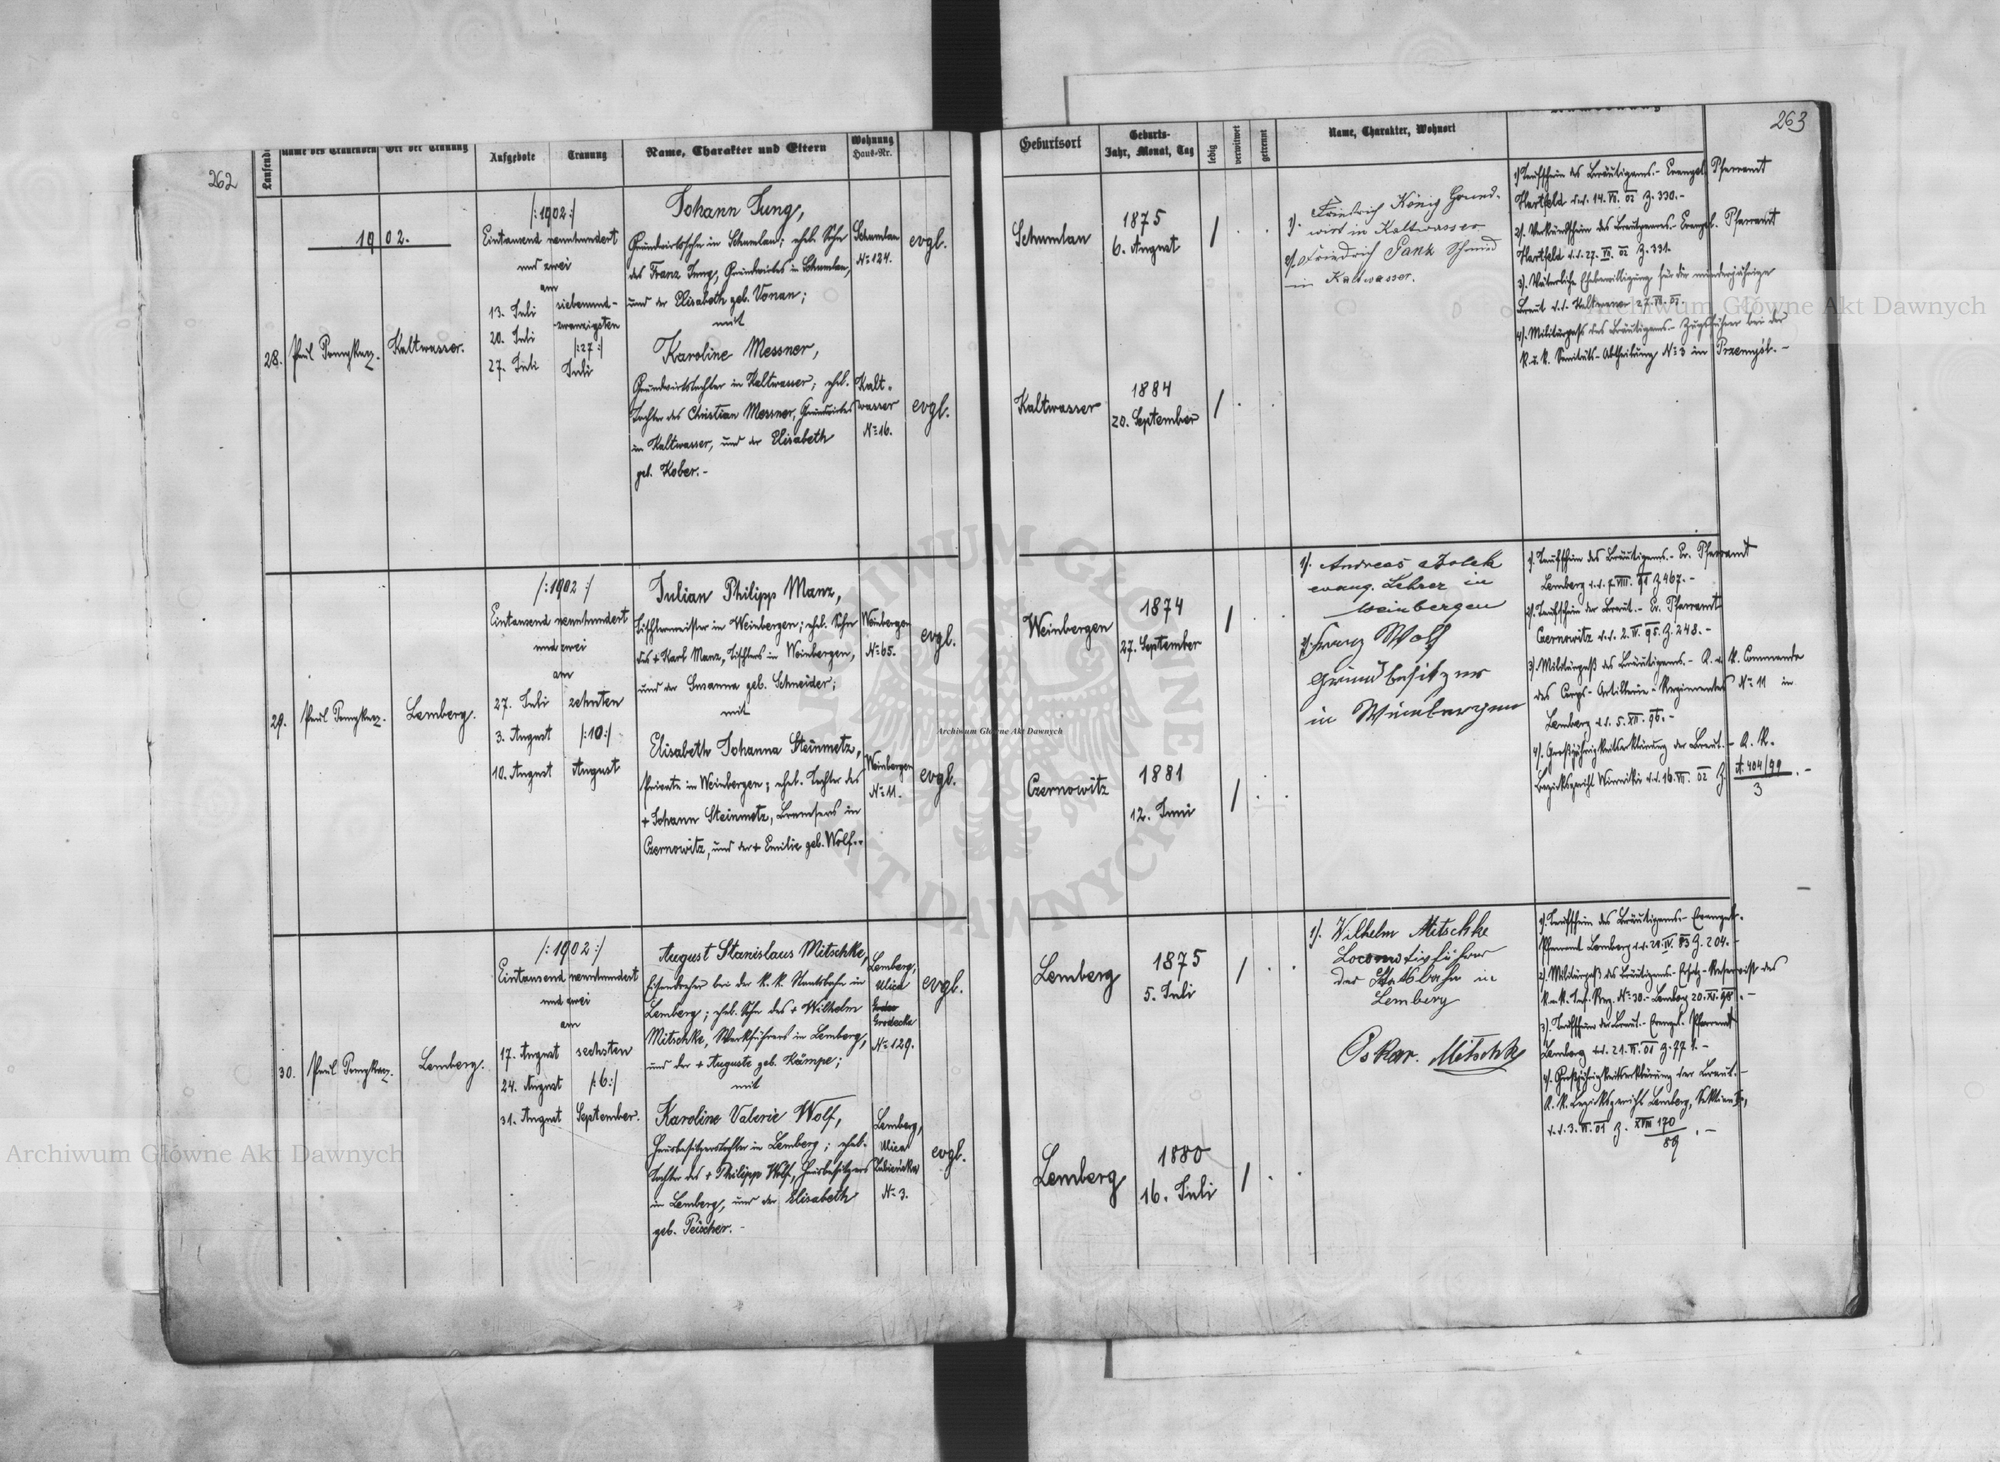 262
Laufende
Name des Trauenden
Ort der Trauung
Aufgebote
Trauung
Name, Charakter und Eltern
Wohnung
Haus-Nr.
1902.
28.
Paul
Kaltwasser.
/:1902:/
Eintausend neunhundert
und zwei
am
13. Juli
20. Juli
27. Juli
siebenund-
zwanzigsten
/:27:/
Juli
Johann Jung,
Grundwirtssohn in Schumlau; ehel. Sohn
des Franz Jung, Grundwirtes in Schumlau,
und der Elisabeth geb. Vonau;
mit
Karoline Messner,
Grundwirtstochter in Kaltwasser; ehel.
Tochter des Christian Messner, Grundwirtes
in Kaltwasser, und der Elisabeth
geb. Kober.-
Schumlau
No 124.
evgl.
Kalt-
wasser
No 16.
evgl.
29.
Paul
Lemberg.
/:1902:/
Eintausend neunhundert
und zwei
am
27. Juli
3. August
10. August
zehnten
/:10:/
August
Julian Philipp Manz,
Tischlermeister in Weinbergen; ehel. Sohn
des + Karl Manz, Tischlers in Weinbergen,
und der Susanna geb. Schneider;
mit
Elisabeth Johanna Steinmetz,
Private in Weinbergen; ehel. Tochter des
+ Johann Steinmetz, in
Czernowitz, und der + Emilie geb. Wolf.-
Weinbergen
No 65.
evgl.
Weinbergen
No 11.
evgl.
30.
Paul
Lemberg.
/:1902:/
Eintausend neunhundert
und zwei
am
17. August
24. August
31. August
sechsten
/:6:/
September.
August Stanislaus Mitschke,
Eisendreher bei der k. k. Staatsbahn in
Lemberg; ehel. Sohn des + Wilhelm
Mitschke, Werkführers in Lemberg,
und der + Auguste geb. Kämpe;
mit
Karoline Valerie Wolf,
Hausbesitzerstochter in Lemberg; ehel.
Tochter des + Philipp Wolf, Hausbesitzers
in Lemberg, und der Elisabeth
geb. Peischer.-
Lemberg,
Ulica
Grodecka
No 129.
evgl.
Lemberg,
Ulica
No 3.
evgl.
263
Geburtsort
Geburts-
Jahr, Monat, Tag
ledig
verwitwet
getrennt
Name, Charakter, Wohnort
Schumlau
1875
6. August
Kaltwasser
1884
20. September
1). Friedrich König Grund-
wirt in Kaltwasser
2). Friedrich Pank Schmied
in Kaltwasser.
1) Taufschein des Bräutigams.- Evangel. Pfarramt
Hartfeld d.d. 14. VI. 02 Z. 330.-
2). Verkündschein des Bräutigams.- Evangel. Pfarramt
Hartfeld d.d. 27. VII. 02 Z. 331.
3). Väterliche Ehebewilligung für die minderjährige
Braut d.d. Kaltwasser 27. VII. 02.
4). Militärpass des Bräutigams.- Zugsführer bei der
k. u. k. Sanitäts-Abtheilung No 3 in Przemyśl.-
Weinbergen
1874
27. September
Czernowitz
1881
12. Juni
1). Andreas
evang. Lehrer in
Weinbergen
2). Franz Wolf
Grundbesitzer
in Weinbergen
1). Taufschein des Bräutigams.- Ev. Pfarramt
Lemberg d.d. 7. VIII. 91 Z. 467.-
2). Taufschein der Braut.- Ev. Pfarramt
Czernowitz d.d. 2. IV. 95. Z. 248.-
3). Militärpaß des Bräutigams.- K. u. K. Commando
des Corps-Artillerie-Regimentes No 11 in
Lemberg d.d. 5. XII. 96.-
4). Großjährigkeitserklärung der Braut.- K. K.
Bezirksgericht Winniki d.d. 16. VII. 02 Z. A. 404/99
3
Lemberg
1875
5. Juli
Lemberg
1880
16. Juli
1). Wilhelm Mitschke
Locomotivführer
der Staatsbahn in
Lemberg
Oskar Mitschke
1). Taufschein des Bräutigams.- Evangel.
Pfarramt Lemberg d.d. 29. IV. 83 Z. 204.-
2). Militärpaß des Bräutigams.- Ersatz-Reservist des
k. u. k. Inf. Reg. No 30.- Lemberg 20. XI. 98.-
3). Taufschein der Braut.- Evangel. Pfarramt
Lemberg d.d. 21. VI. 01 Z. 771.-
4). Großjährigkeitserklärung der Braut.-
K. K. Bezirksgericht Lemberg,
d.d. 3. VI. 01 Z. XVIII 170
89
Archiwum Główne Akt Dawnych
Archiwum Główne Akt Dawnych
Archiwum Główne Akt Dawnych
ARCHIWUM GŁÓWNE
AKT DAWNYCH